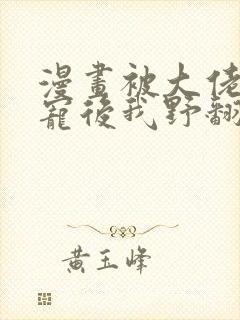 漫畫被大佬
寵後我野翻
黄玉峰